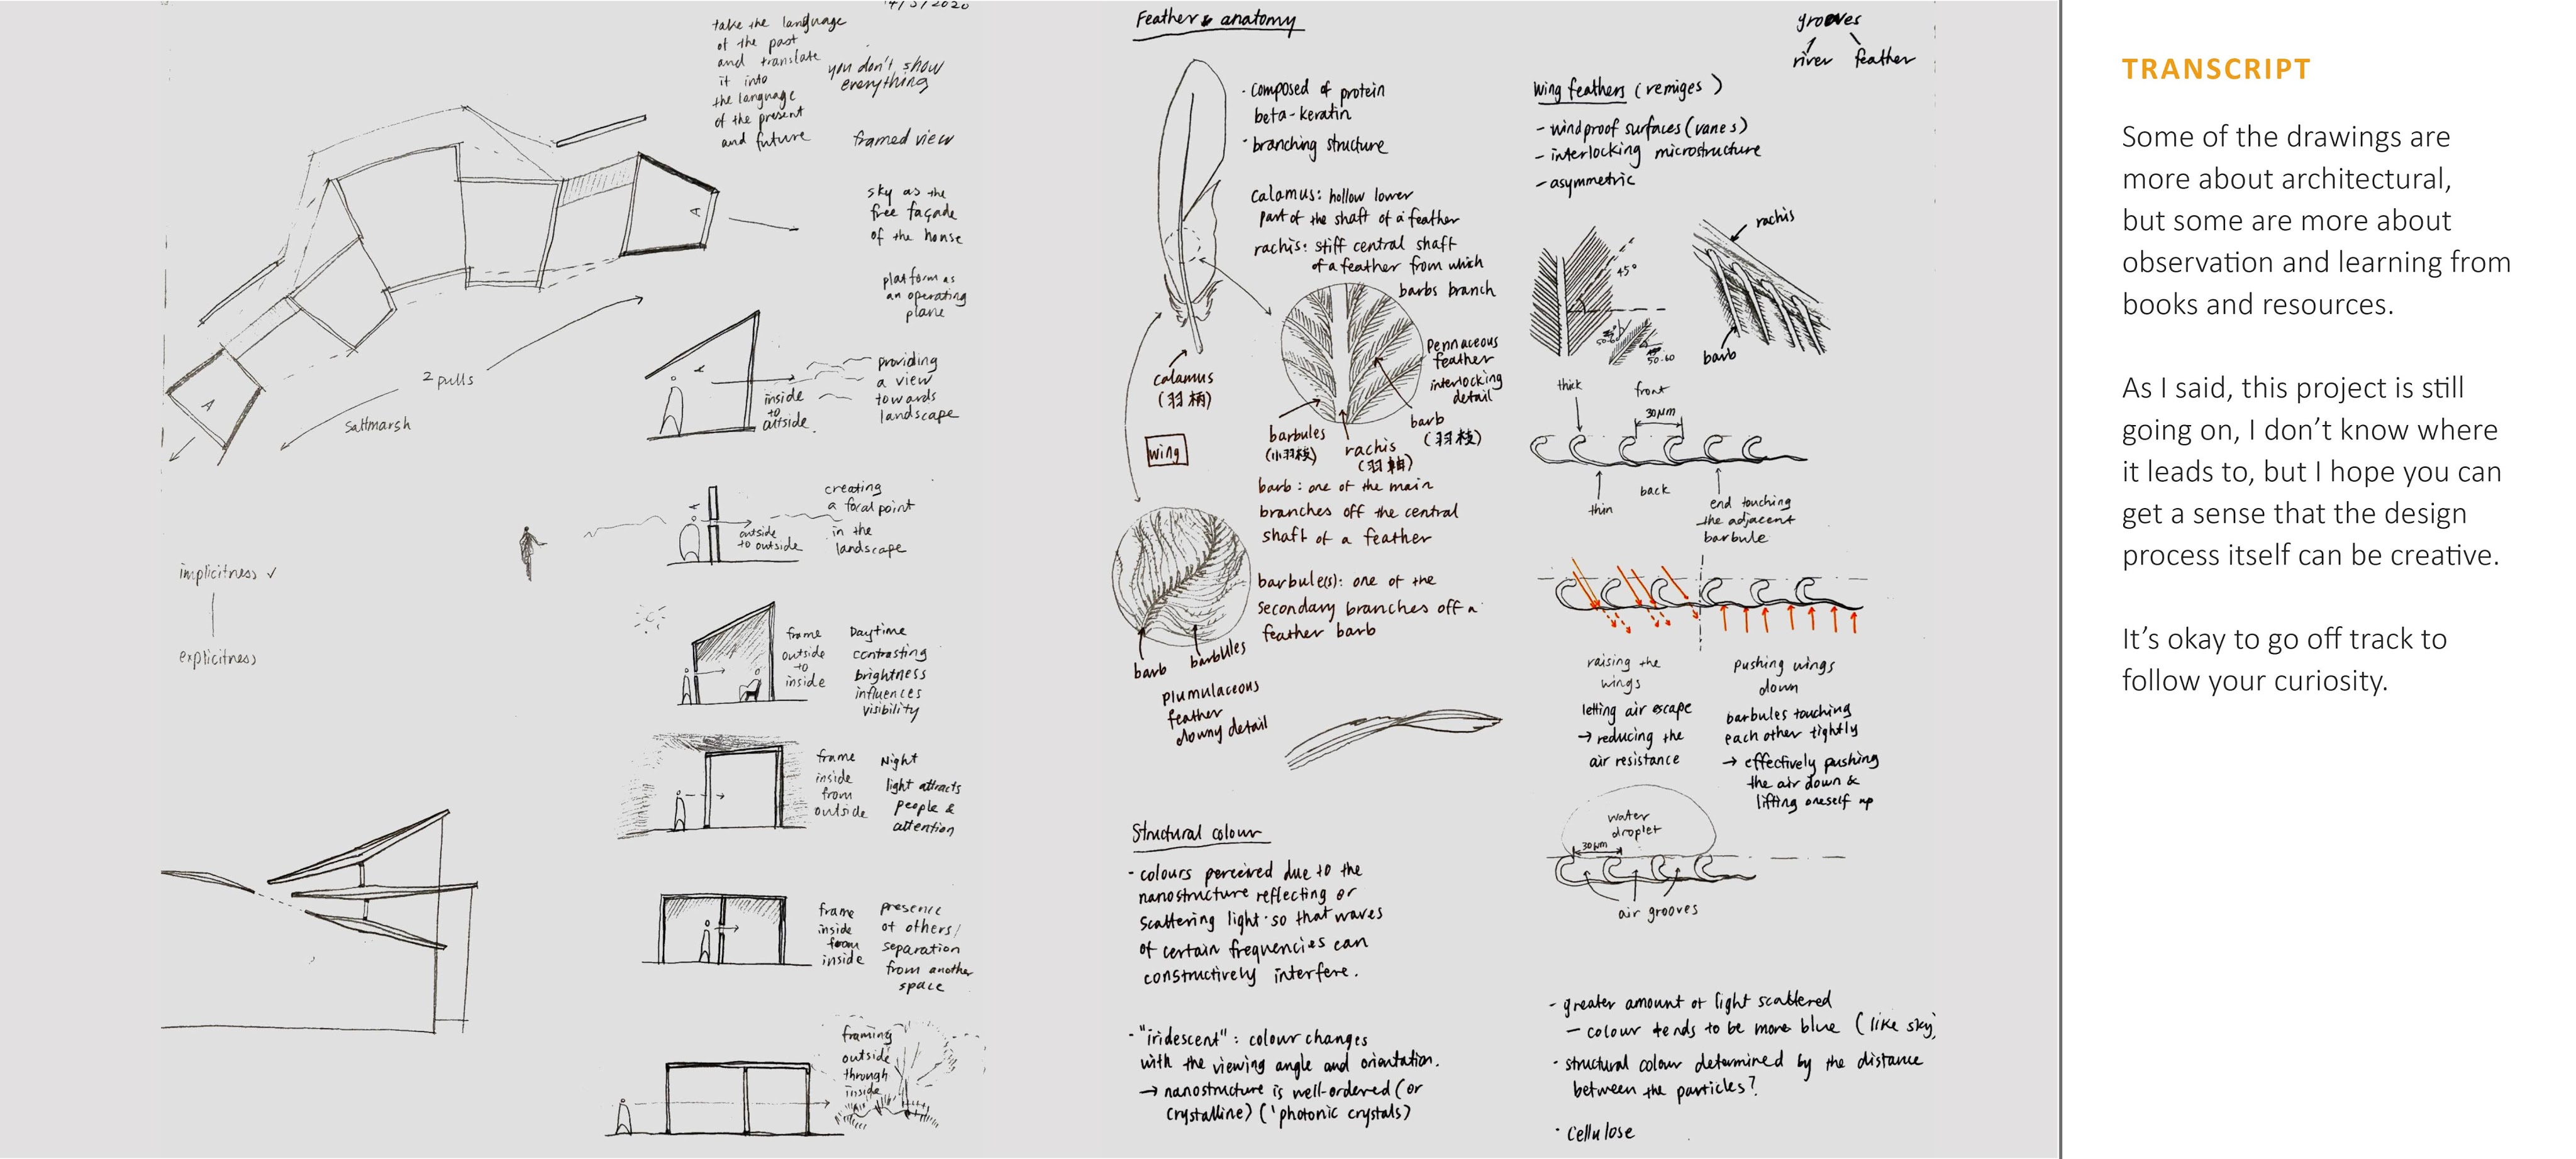 14/3/2020
take the language
of the past
and translate
it into
the language
of the present
and future
you don't show
everything
framed view
sky as the
free façade
of the house
platform as
an operating
plane
A
A
2 pulls
saltmarsh
inside
to
outside.
providing
a view
towards
landscape
outside
to outside
creating
a focal point
in the
landscape
implicitness ✓
explicitness
frame
outside
to
inside
Daytime
contrasting
brightness
influences
visibility
frame
inside
from
outside
Night
light attracts
people &
attention
frame
inside
from
inside
presence
of others/
separation
from another
space
framing
outside
through
inside
Feather anatomy
· composed of protein
beta-keratin
· branching structure
calamus: hollow lower
part of the shaft of a feather
rachis: stiff central shaft
of a feather from which
barbs branch
Pennaceous
feather
interlocking
detail
calamus
(羽柄)
wing
barbules
(小羽枝)
rachis
(羽軸)
barb
(羽枝)
barb: one of the main
branches off the central
shaft of a feather
barbule(s): one of the
secondary branches off a
feather barb
barb
barbules
plumulaceous
feather
downy detail
Structural colour
- colours perceived due to the
nanostructure reflecting or
scattering light so that waves
of certain frequencies can
constructively interfere.
- "iridescent": colour changes
with the viewing angle and orientation.
→ nanostructure is well-ordered (or
crystalline) ('photonic crystals)
grooves
river feather
wing feathers (remiges)
- windproof surfaces (vanes)
- interlocking microstructure
- asymmetric
45°
50-60
rachis
barb
thick
front
30µm
thin
back
end touching
the adjacent
barbule
raising the
wings
letting air escape
→ reducing the
air resistance
pushing wings
down
barbules touching
each other tightly
→ effectively pushing
the air down &
lifting oneself up
water
droplet
30µm
air grooves
- greater amount of light scattered
- colour tends to be more blue (like sky)
· structural colour determined by the distance
between the particles?
· cellulose
TRANSCRIPT
Some of the drawings are
more about architectural,
but some are more about
observation and learning from
books and resources.
As I said, this project is still
going on, I don’t know where
it leads to, but I hope you can
get a sense that the design
process itself can be creative.
It’s okay to go off track to
follow your curiosity.